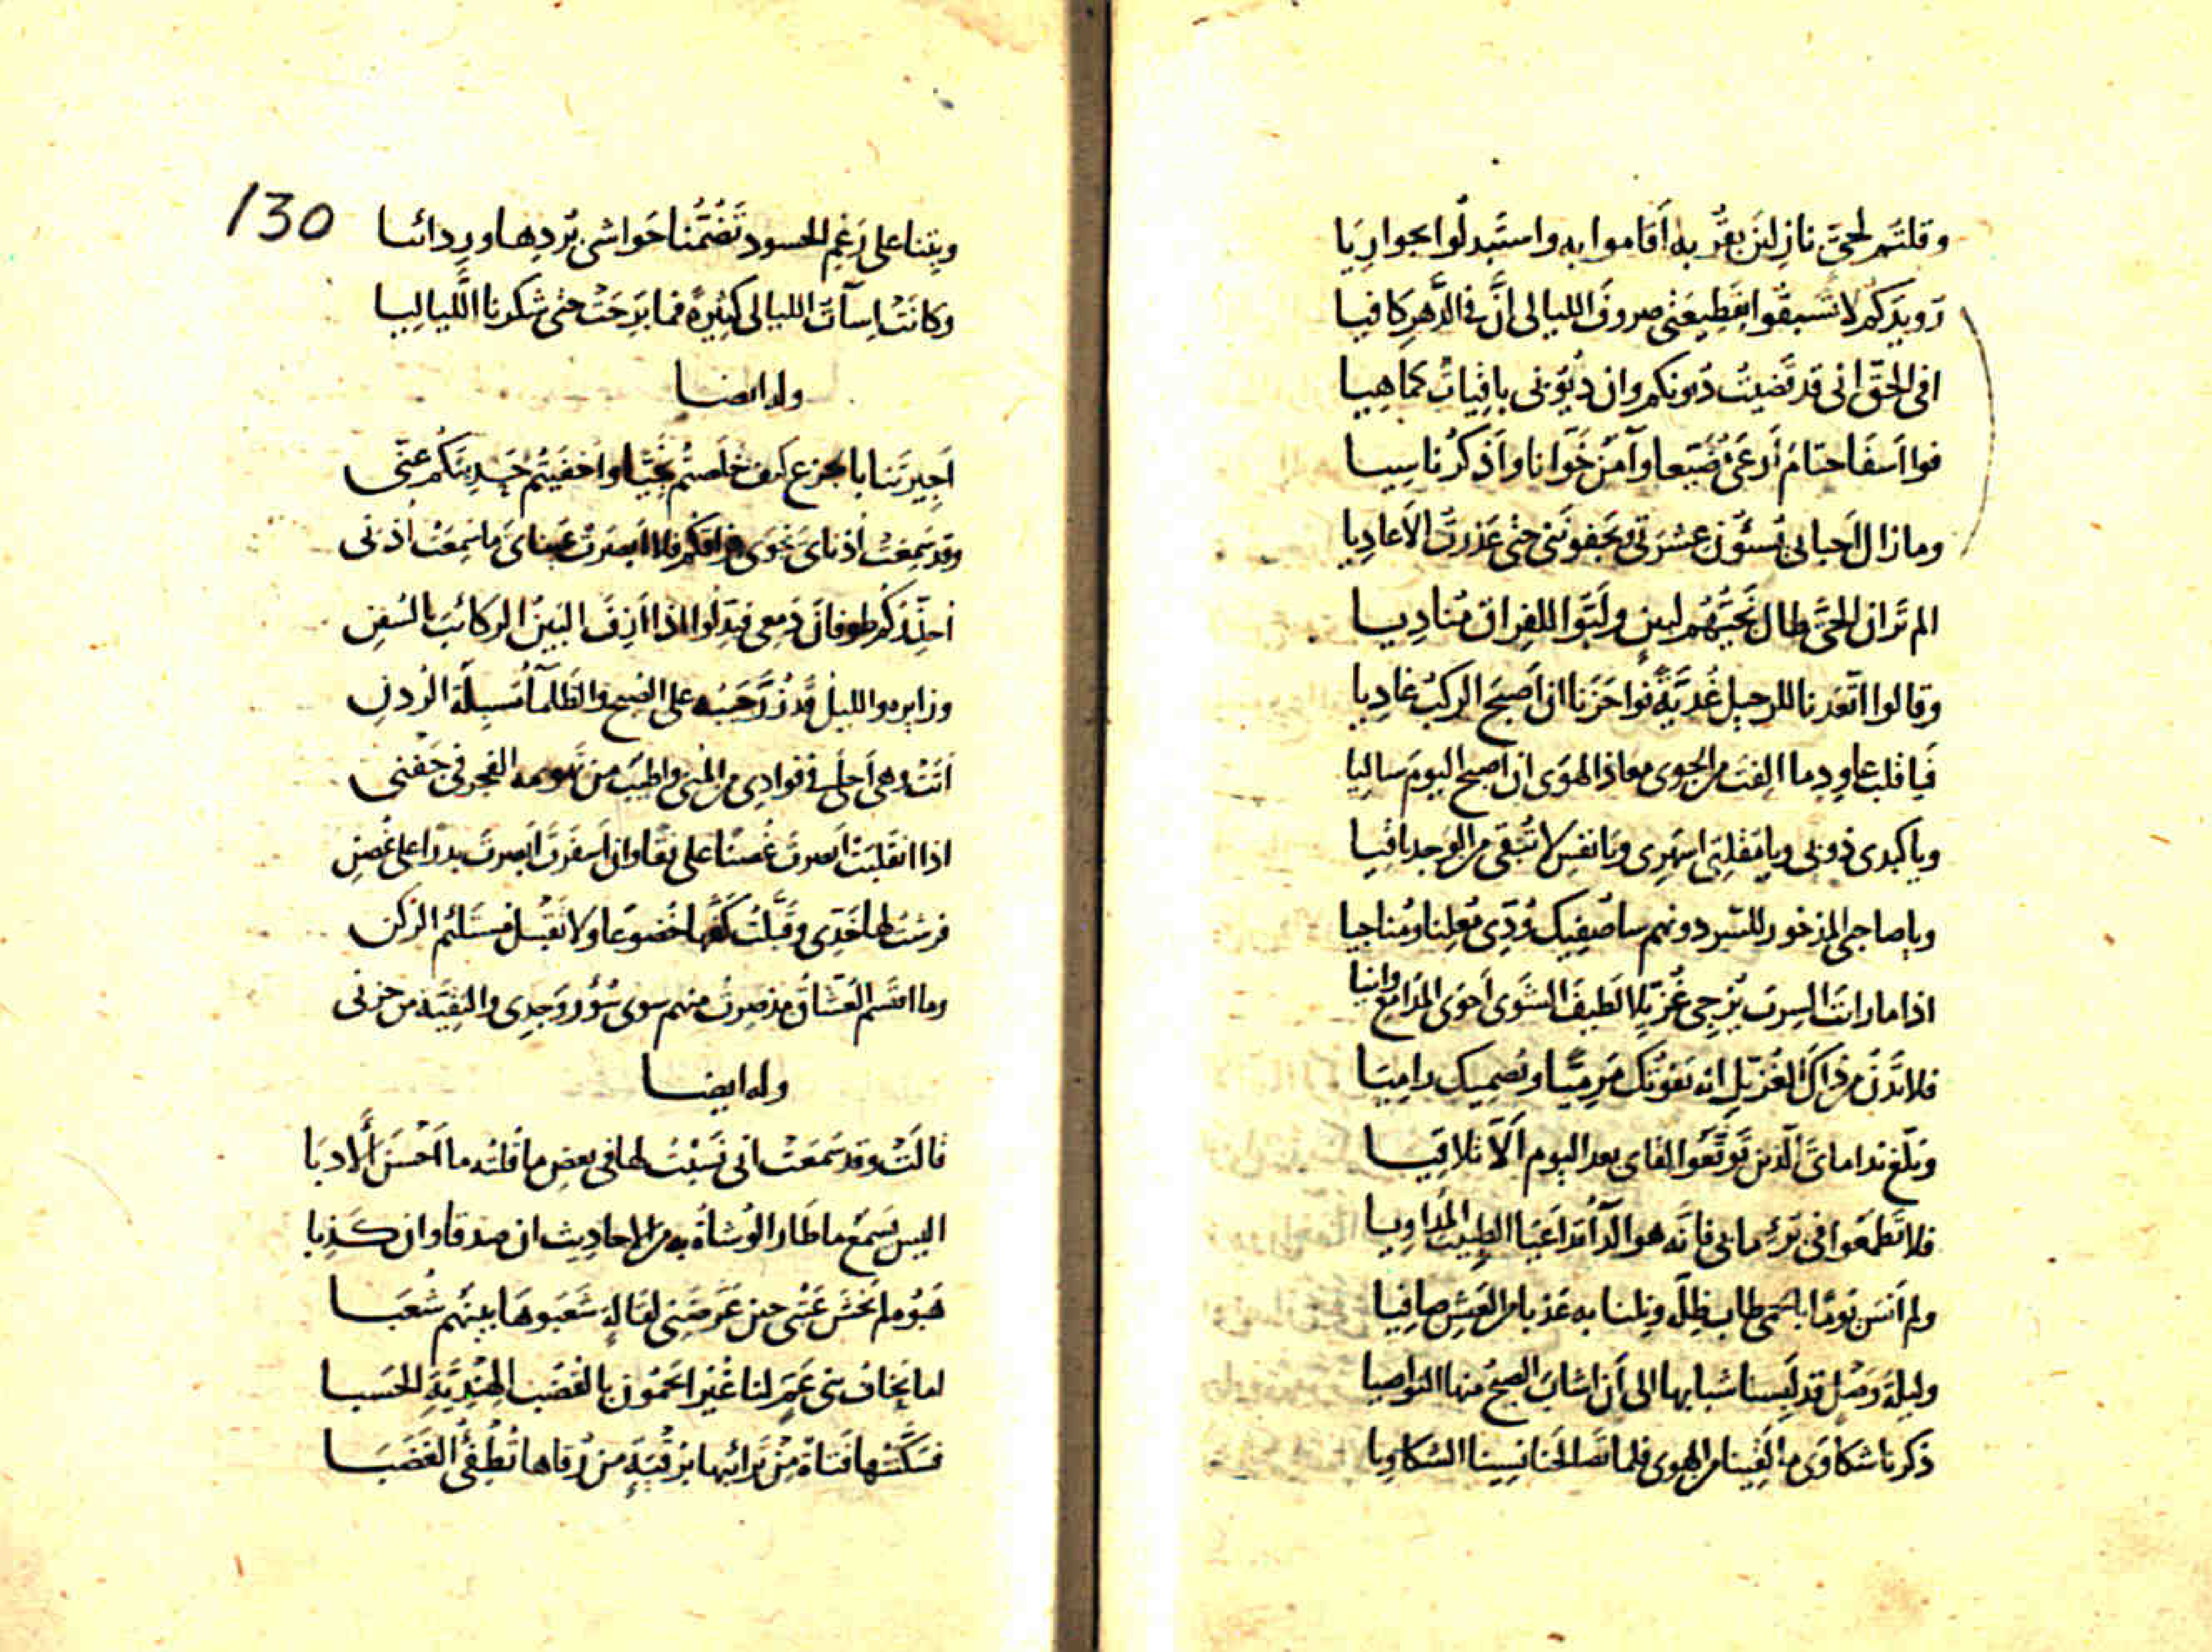 وقلتم لحيّ نازلين بقربه أقاموا به واستبدلوا بجواريا
رويدكم لا تسبقوا بقطيعتي صروف الليالي انّ في الدّهر كافيا
افي الحقّ اني قد قضيت ديونكم وان ديوني باقيات كما هيا
فوا أسفا حتام أرعى مُضَيّعا وآمن خوّانا وأذكر ناسيا
وما زال احبابي يسئون عشرتي ويجفونني حتى عذرت الأعاديا
الم تر ان الحيّ طال نجيّهم لبين ولبّوا للفراق مناديا
وقالوا اتّعدنا للرحيل غُدَيَّةً فوا حَزَنا ان أصبح الركب غاديا
فيا قلب عاود ما الفت من الجوى معاذ الهوى ان اصبح اليوم ساليا
ويا كبدي ذوبي ويا مقلتي اسهري ويا نفس لا تُبقي من الوجد باقيا
ويا صاحبي المذخور للسّر دونهم ساصفيك وُدّي معلنا ومناجيا
اذا ما رايت السرب يُزجي غُزيّلا لطيف الشوى أحوى المدامع وانيا
فلا تدن من ذاك الغزيل انه يفوتك مرميّا ويصميك راميا
وبلّغ نداماي الّذين توقّعوا لقاي بعد اليوم ألّا تلاقيا
فلا تطمعوا في برء ما بي فانّه هو الدآء قد أعيا الطبيب المداويا
ولم أنس يوما بالحمى طاب ظلّه ونلنا به عذبا من العيش صافيا
وليلة وصل قد لبسنا شبابها الى أن اشاب الصبح منها النواصيا
ذكرنا شكاوى ما لقينا من الهوى فلما تصالحنا نسينا الشكاويا
130
وبتنا على رغم الحسود تضمّنا حواشي بُردها وردائيا
وكانت اسآت الليالي كثيرة فما برحت حتى شكرنا اللّياليا
وله ايضا
أجيرتنا بالجزع كيف خلصتم نجيّا واخفيتم حديثكم عنّي
وقد سمعت أذناي نجوى فراقكم فلا أبصرت عيناي ما سمعت أذني
احذّركم طوفان دمعي فبدّلوا اذا أزف البين الركائب بالسفن
وزايرة والليل قد زرّ جيبه على الصبح والظلمآ مسبلة الردن
أتت وهي أحلى في فوادي من المنى واطيب من تهويمة الفجر في جفني
اذا انقلبت أبصرت غصنًا على نقا وان أسفرت أبصرت بدرا على غصن
فرشت لها خدّي وقبّلت كفّها خضوعا ولا تقبيل مستلم الركن
وما اقتسم العشاق مذ صرت منهم سوى سُؤر وجدي والبقيّة من حزني
وله ايضا
قالت وقد سمعت اني نسبت لها في بعض ما قلته ما أحسن الأدبا
اليس يسمع ما طار الوشاة به من الاحاديث ان صدقا وان كذبا
هبوه لم يخش عتبي حين عرضني لقالة شعبوها بينهم شعبا
اما يخاف بني عمّ لنا غُيُرا يحمون بالقضب الهنديّة الحسبا
فسكّنتها فتاة من ترائبها برقية من رقاها تُطفئ الغضبا